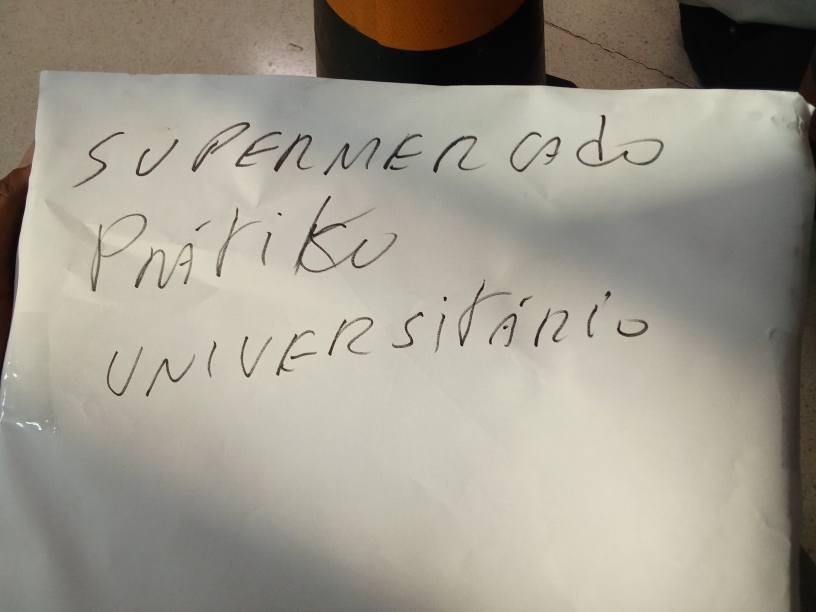 SUPERMERCAdo
PRÁtiKo
UNIVERSitÁRio